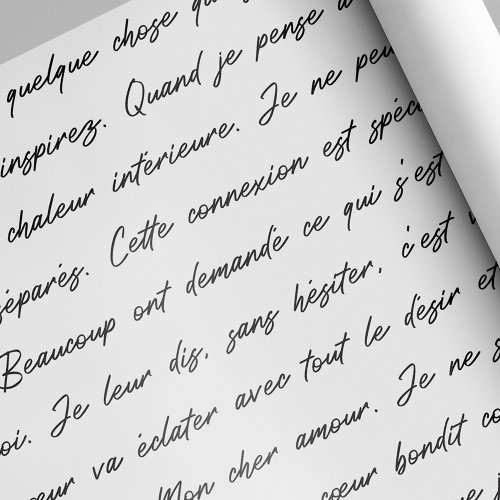 quelque chose
inspirez. Quand je pense
chaleur intérieure. Je ne
séparés. Cette connexion est
Beaucoup ont demandé ce qui s'est
Je leur dis, sans hésiter, c'est
va éclater avec tout le désir et
Mon cher amour. Je ne
cœur bondit